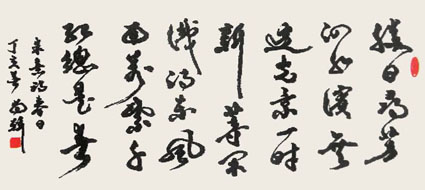 勝日尋芳
泗水濱無
邊光景一時
新等閒
識得東風
面萬紫千
紅總是春
朱熹詩春日
丁亥春